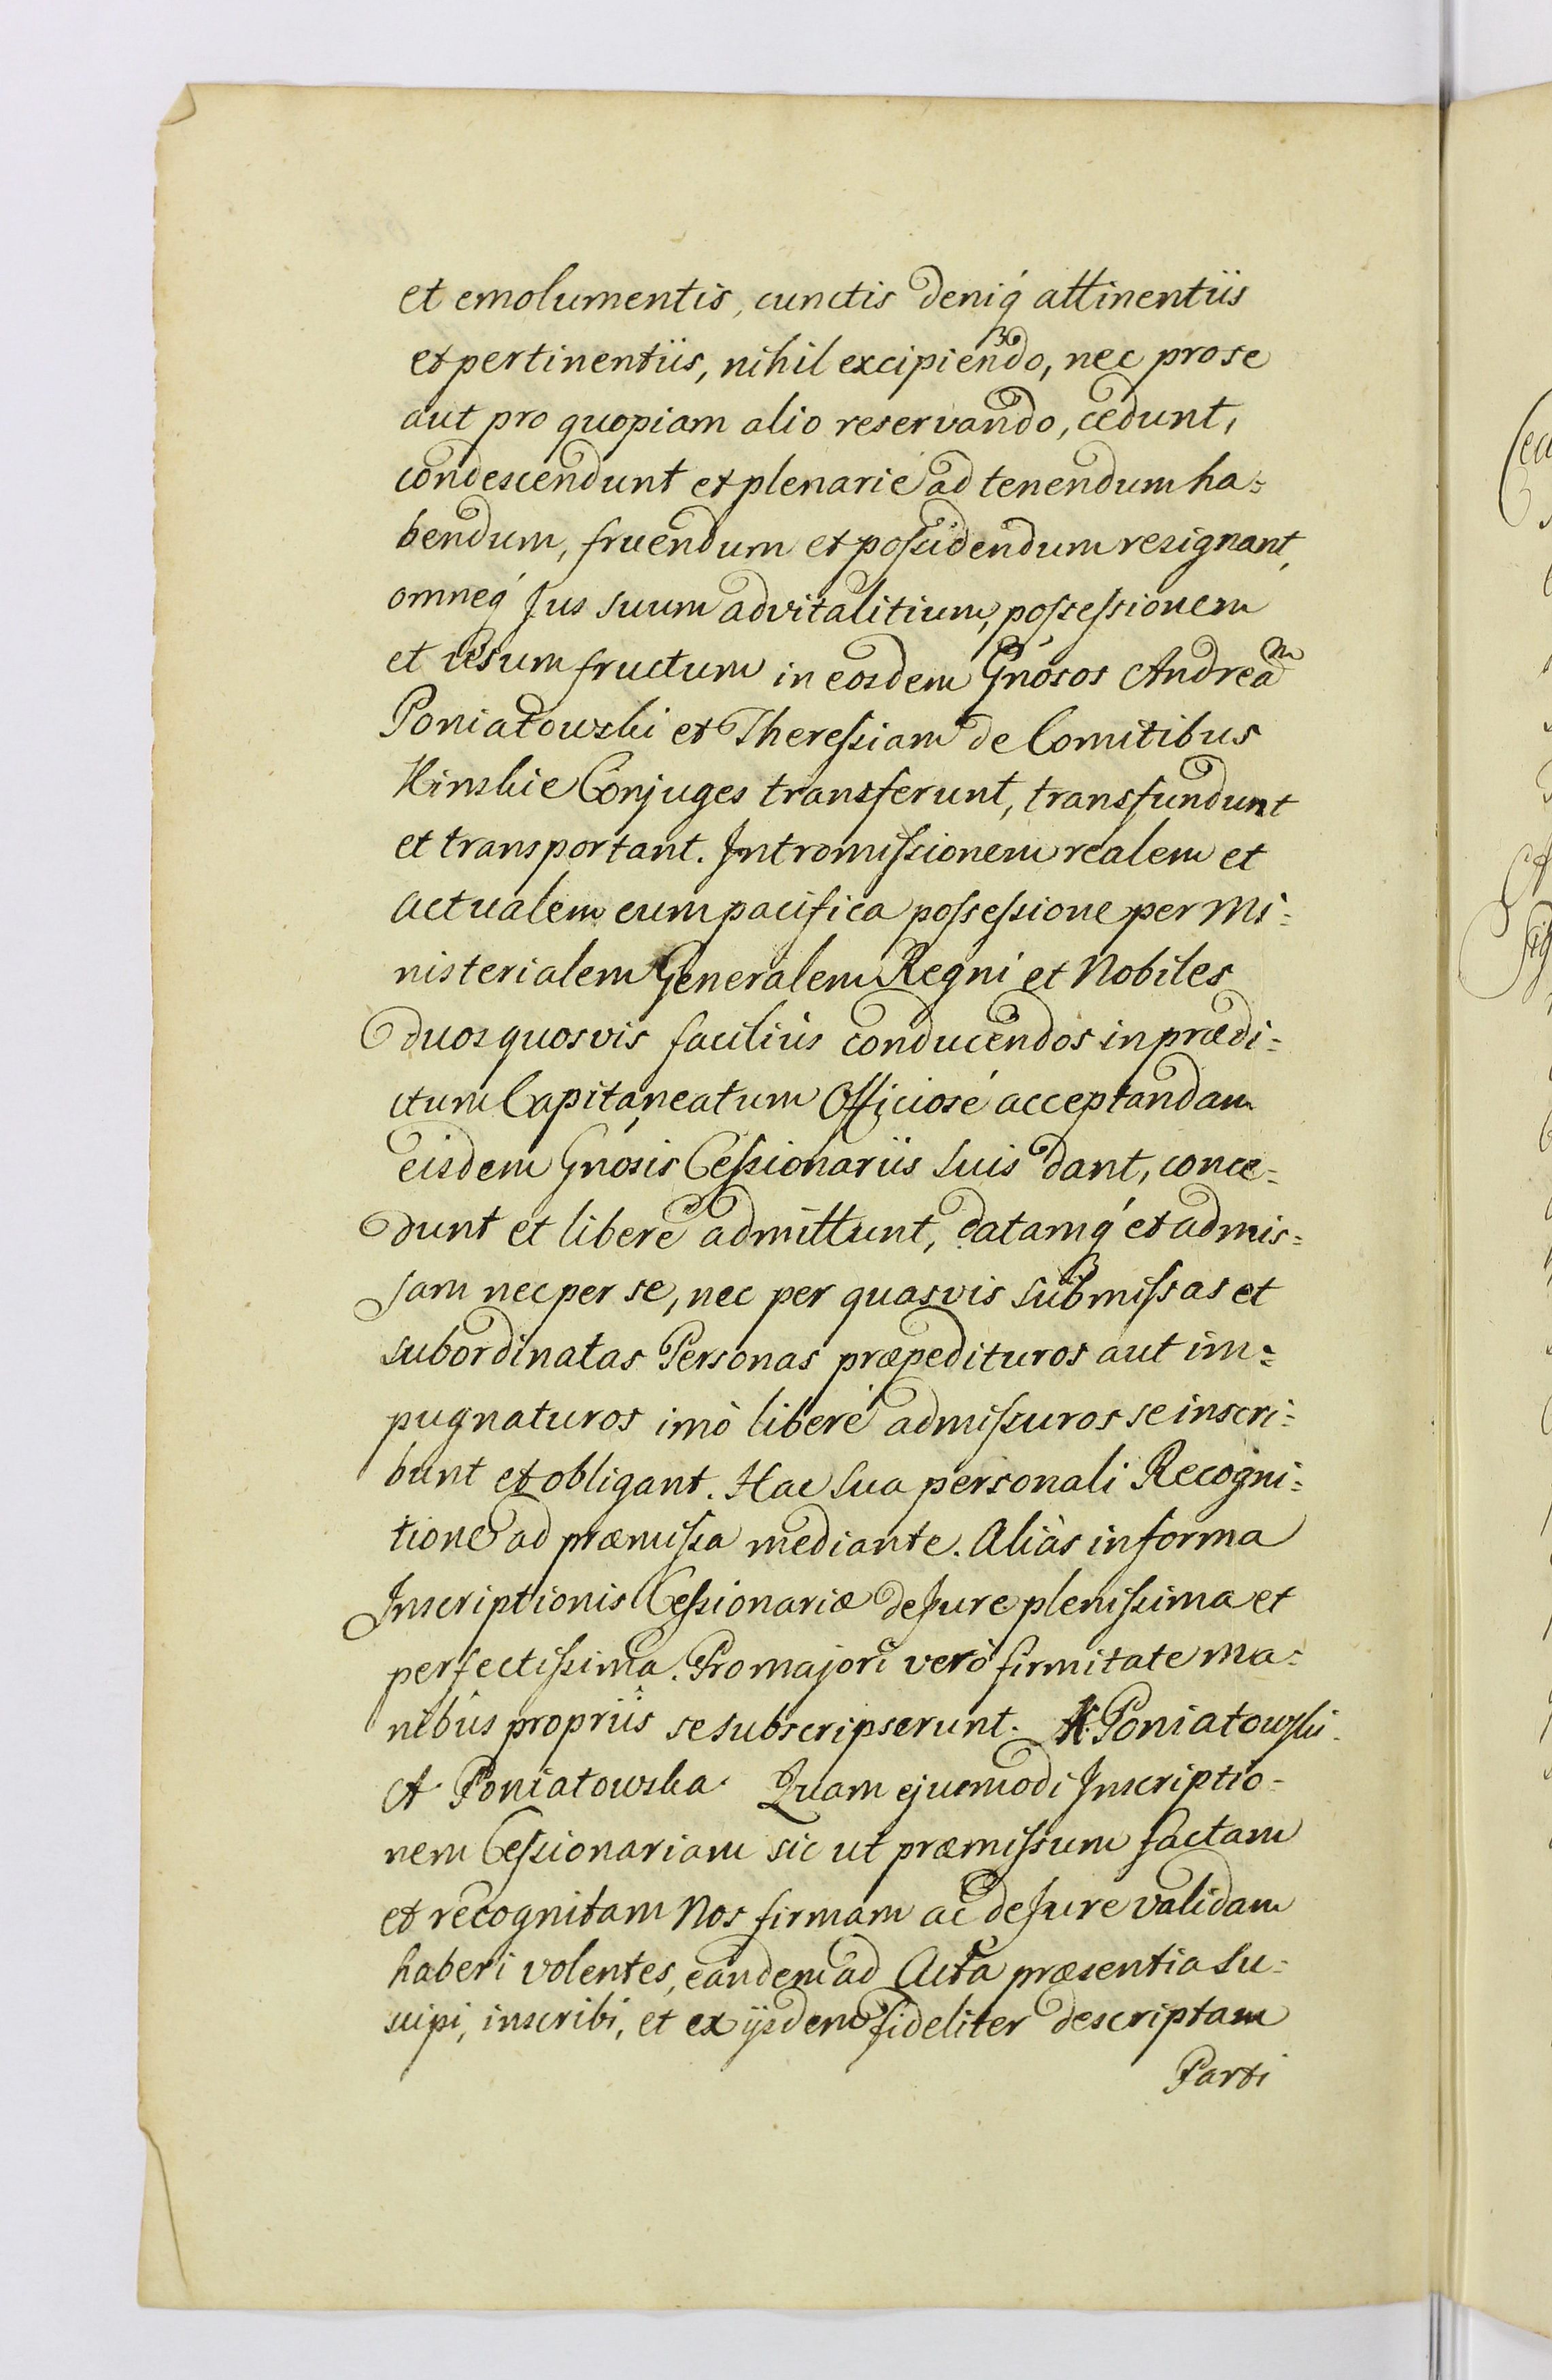 et emolumentis, cunctis deniq́ attinentiis
et pertinentiis, nihil excipiendo, nec pro se
aut pro quopiam alio reservando, cedunt,
condescendunt et plenarie ad tenendum ha=
bendum, fruendum et possidendum resignant,
omneq́ Jus suum advitalitium, possessionem
et usumfructum in eosdem Gnósos Andream
Poniatowski et Theressiam de Comitibus
Kinskie Conjuges transferunt, transfundunt
et transportant. Intromissionem realem et
actualem cum pacifica possessione per Mi=
nisterialem Generalem Regni et Nobiles
duos quosvis faciliùs conducendos in prædi=
ctum Capitaneatum Officiosé acceptandam
eisdem Gnósis Cessionariis suis dant, conce=
dunt et liberè admittunt, datamq́ et admis=
sam nec per se, nec per quasvis submissas et
subordinatas Personas præpedituros aut im=
pugnaturos imò liberé admissuros se inscri=
bunt et obligant. Hac sua personali Recogni=
tione ad præmissa mediante. Aliàs in forma
Inscriptionis Cessionariæ de Jure plenissima et
perfectissima. Pro majori verò firmitate ma=
nibûs propriis se subscripserunt. K. Poniatowski.
A. Poniatowska. Quam ejusmodi Inscriptio=
nem Cessionariam sic ut præmissum factam
et recognitam Nos firmam ac de Jure validam
haberi volentes, eandem ad Acta præsentia su=
scipi, inscribi, et ex ijsdem fideliter descriptam
Parti